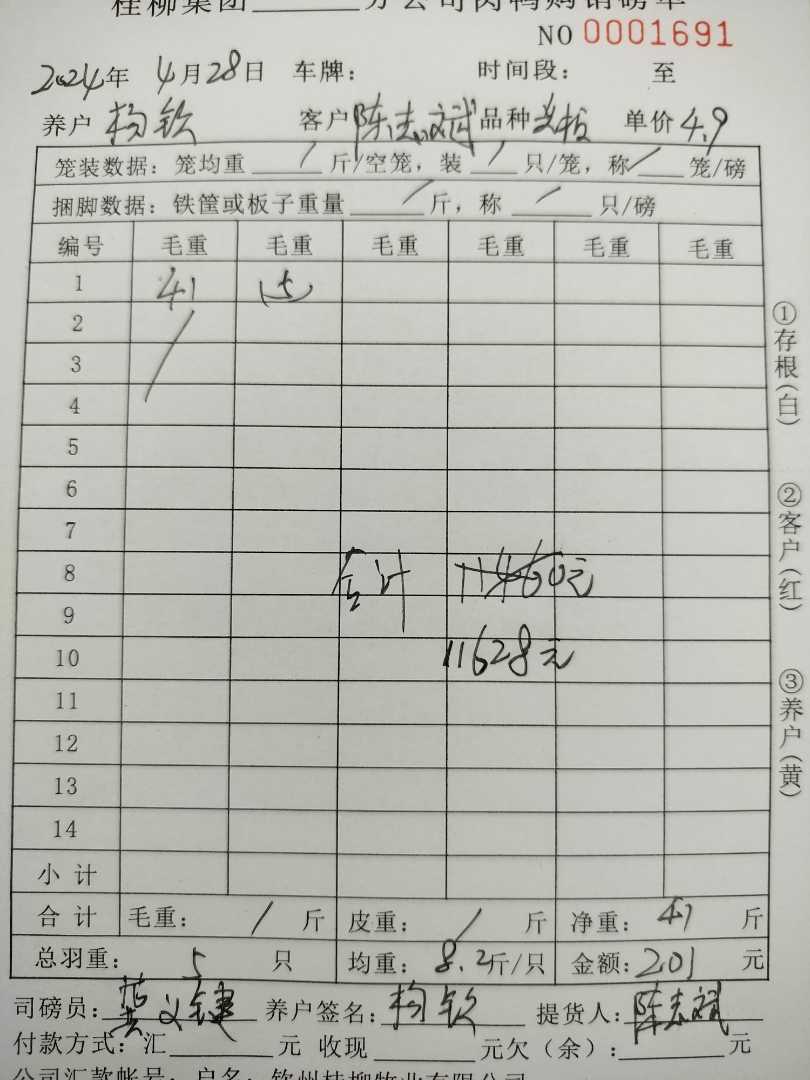 桂柳集团______分公司肉鸭购销磅单
NO 0001691
2024年 4月28日 车牌: 时间段: 至
养户 杨钦 客户 陈志斌 品种 单价 4.9
笼装数据: 笼均重 / 斤/空笼, 装 / 只/笼, 称 / 笼/磅
捆脚数据: 铁筐或板子重量 / 斤, 称 / 只/磅
编号 毛重 毛重 毛重 毛重 毛重 毛重
1 41 (5)
2
3
4
5
6
7
8 合计 11460元
9
10 11628元
11
12
13
14
小 计
合 计 毛重: / 斤 皮重: / 斤 净重: 41 斤
总羽重: 5 只 均重: 8.2斤/只 金额: 201 元
司磅员: 养户签名: 杨钦 提货人: 陈志斌
付款方式: 汇______元 收现______元欠(余):______元
公司汇款帐号: 户名: 钦州桂柳牧业有限公司
①存根(白)
②客户(红)
③养户(黄)